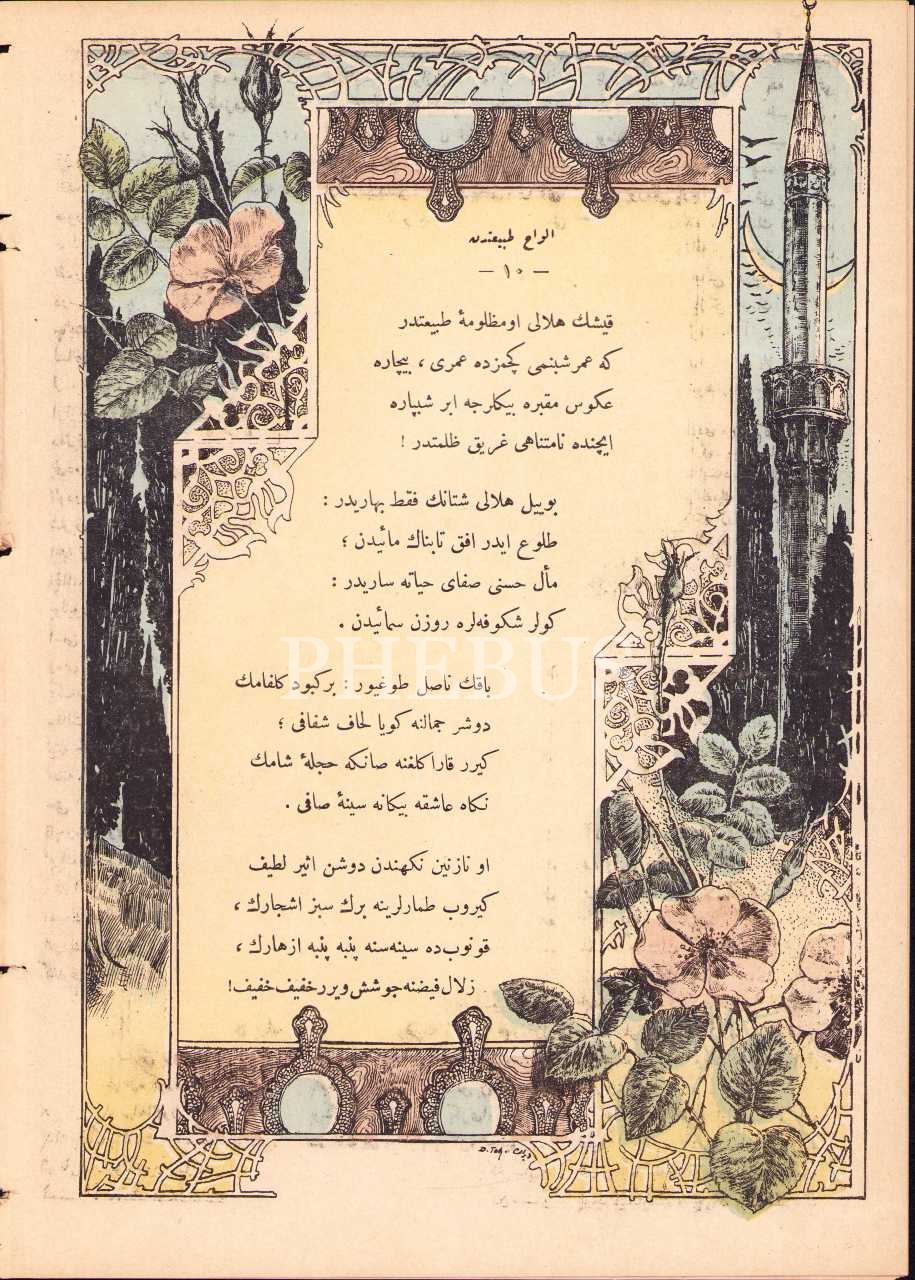 الواح طبیعتدن
— ١٠ —
قیشك هلالی اومظلومهٔ طبیعتدر
كه عمر شبنمی كچمزده عمری ، بیچاره
عكوس مقبره بیكلرجه ابر شبپاره
ایچنده نامتناهی غریق ظلمتدر !
بوییل هلالی شتانك فقط بهاریدر :
طلوع ایدر افق تابناك مائیدن ؛
مأل حسنی صفای حیاته ساریدر :
كولر شكوفه‌لره روزن سمائیدن .
باقك ناصل طوغیور : بركبود كلفامك
دوشر جمالنه كویا لحاف شفافی ؛
كیرر قاراكلغنه صانكه حجلهٔ شامك
نكاه عاشقه بیكانه سینهٔ صافی .
او نازنین نكهندن دوشن اثیر لطیف
كیروب طمارلرینه برك سبز اشجارك ،
قونوب‌ده سینه‌سنه پنبه پنبه ازهارك ،
زلال فیضنه جوشش ویرر خفیف خفیف !
PHEBUS